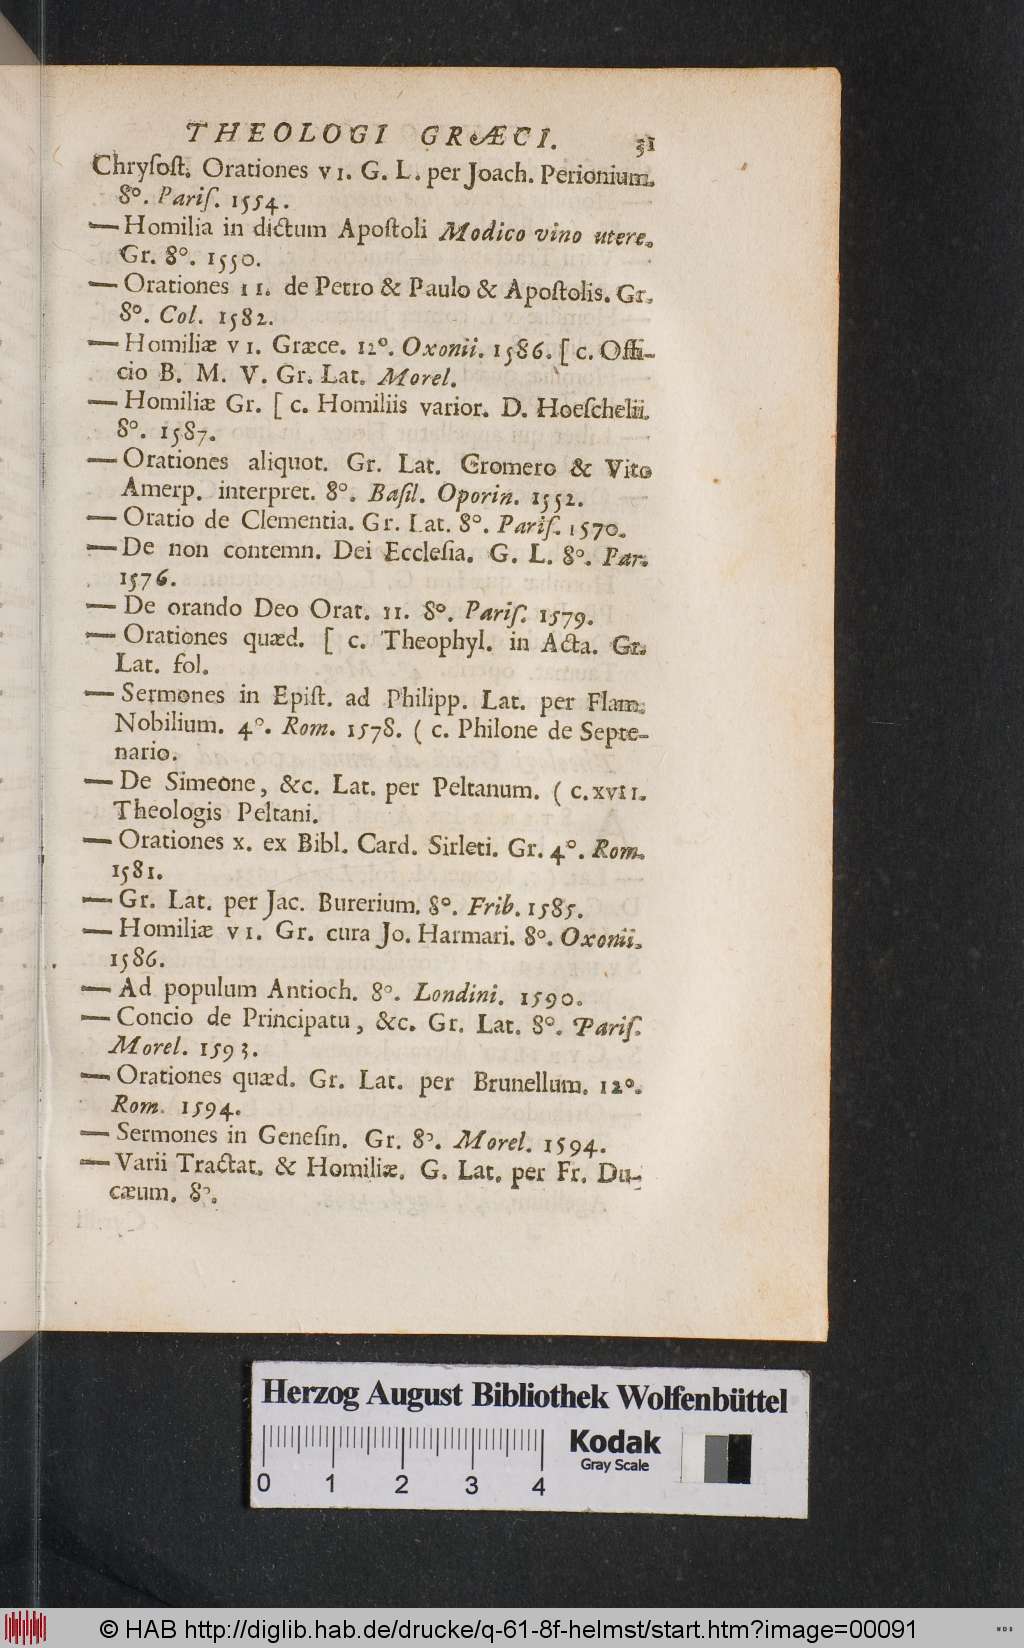 THEOLOGI GRÆCI. 31
Chryſoſt. Orationes VI. G. L. per Joach. Perionium.
8°. Pariſ. 1554.
— Homilia in dictum Apoſtoli Modico vino utere.
Gr. 8°. 1550.
— Orationes II. de Petro & Paulo & Apoſtolis. Gr.
8°. Col. 1582.
— Homiliæ VI. Græce. 12°. Oxonii. 1586. [ c. Offi-
cio B. M. V. Gr. Lat. Morel.
— Homiliæ Gr. [ c. Homiliis varior. D. Hoeſchelii.
8°. 1587.
— Orationes aliquot. Gr. Lat. Gromero & Vito
Amerp. interpret. 8°. Baſil. Oporin. 1552.
— Oratio de Clementia. Gr. Lat. 8°. Pariſ. 1570.
— De non contemn. Dei Eccleſia. G. L. 8°. Par.
1576.
— De orando Deo Orat. II. 8°. Pariſ. 1579.
— Orationes quæd. [ c. Theophyl. in Acta. Gr.
Lat. fol.
— Sermones in Epiſt. ad Philipp. Lat. per Flam.
Nobilium. 4°. Rom. 1578. ( c. Philone de Septe-
nario.
— De Simeone, &c. Lat. per Peltanum. ( c. XVII.
Theologis Peltani.
— Orationes X. ex Bibl. Card. Sirleti. Gr. 4°. Rom.
1581.
— Gr. Lat. per Jac. Burerium. 8°. Frib. 1585.
— Homiliæ VI. Gr. cura Jo. Harmari. 8°. Oxonii.
1586.
— Ad populum Antioch. 8°. Londini. 1590.
— Concio de Principatu, &c. Gr. Lat. 8°. Pariſ.
Morel. 1593.
— Orationes quæd. Gr. Lat. per Brunellum. 12°.
Rom. 1594.
— Sermones in Geneſin. Gr. 8°. Morel. 1594.
— Varii Tractat. & Homiliæ. G. Lat. per Fr. Du-
cæum. 8°.
Herzog August Bibliothek Wolfenbüttel
Kodak
Gray Scale
0 1 2 3 4
© HAB http://diglib.hab.de/drucke/q-61-8f-helmst/start.htm?image=00091